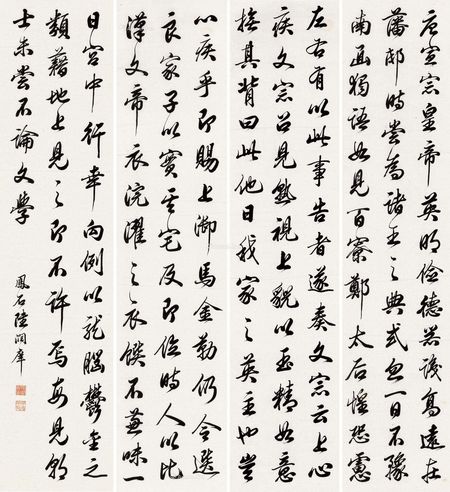 唐宣宗皇帝英明儉德器識高遠在
藩邸時嘗為諸王之典式忽一日不豫
南面獨語如見百寮鄭太后惶恐慮
左右有以此事告者遂奏文宗云上心
疾文宗召見熟視上貌以玉精如意
撫其背曰此他日我家之英主也豈
心疾乎即賜上御馬金勒仍令選
良家子以實其宅及即位時人以比
漢文帝衣浣濯之衣饌不兼味一
日宮中行幸向例以龍腦鬱金之
類藉地上見之即不許焉每見朝
士未嘗不論文學
鳳石陸潤庠